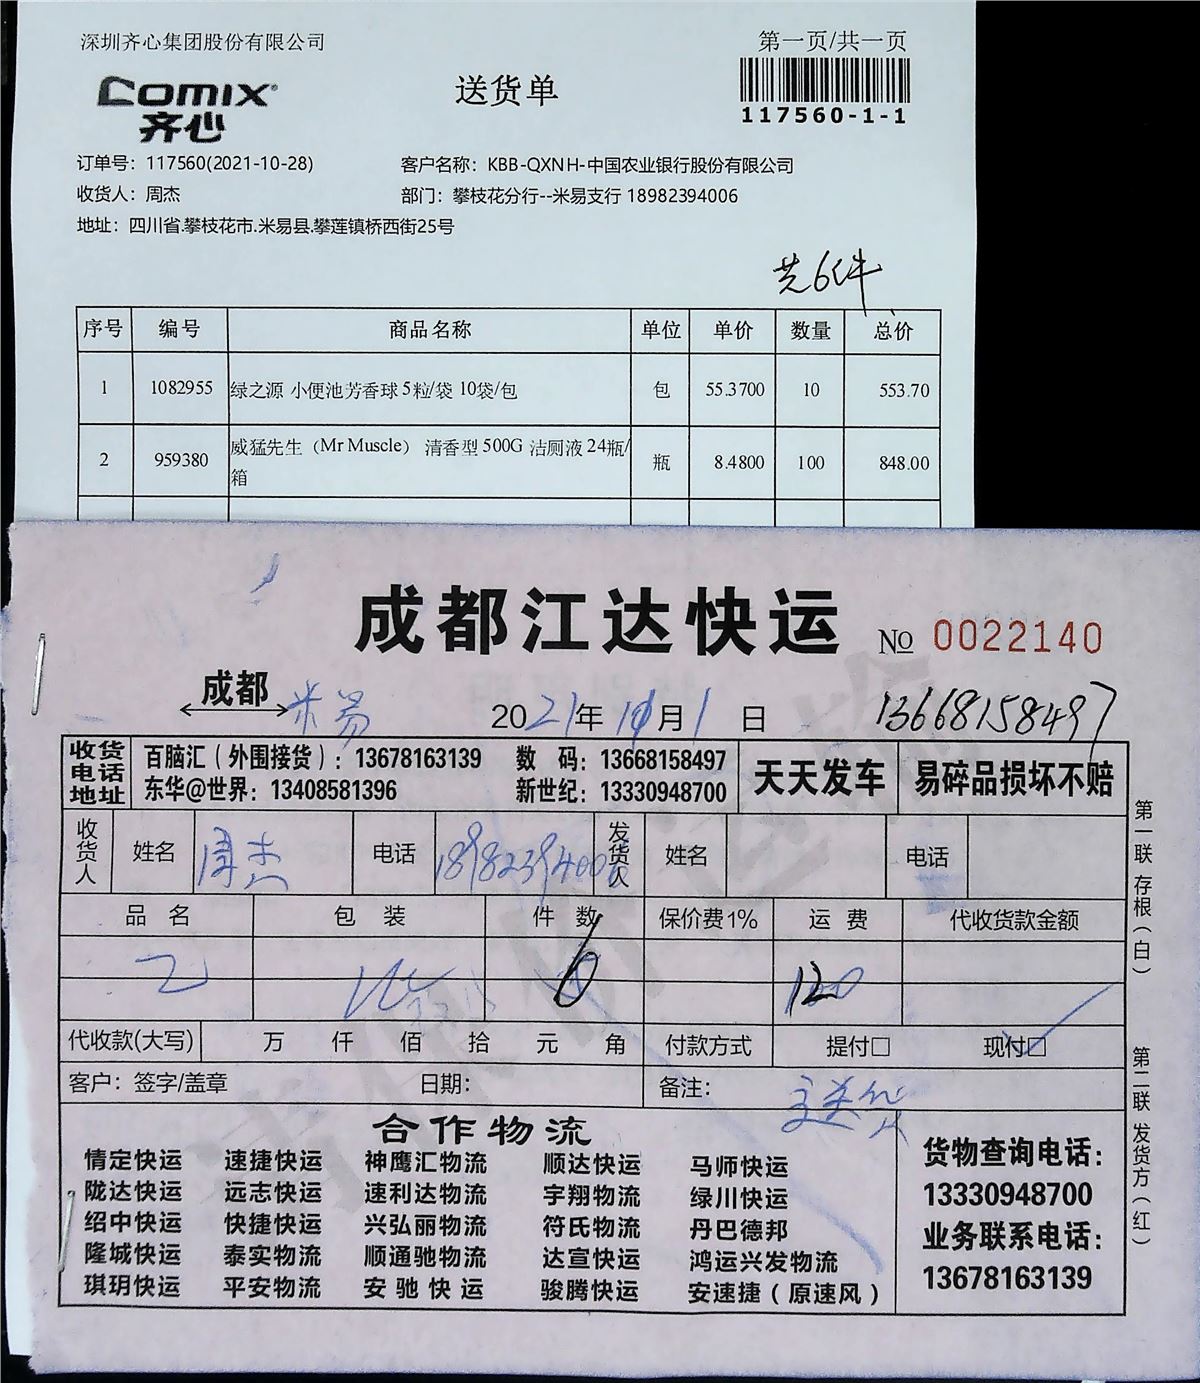 深圳齐心集团股份有限公司
第一页/共一页
Comix
齐心
送货单
117560-1-1
订单号：117560(2021-10-28)
客户名称：KBB-QXNH-中国农业银行股份有限公司
收货人：周杰
部门：攀枝花分行--米易支行 18982394006
地址：四川省.攀枝花市.米易县.攀莲镇桥西街25号
共6件
序号 编号 商品名称 单位 单价 数量 总价
1 1082955 绿之源 小便池芳香球5粒/袋 10袋/包 包 55.3700 10 553.70
2 959380 威猛先生（Mr Muscle） 清香型500G 洁厕液24瓶/箱 瓶 8.4800 100 848.00
成都江达快运
No 0022140
成都 米易
2021年 月1日
13668158497
收货电话地址 百脑汇（外围接货）：13678163139 数 码：13668158497 天天发车 易碎品损坏不赔
东华@世界：13408581396 新世纪：13330948700
收货人 姓名 周杰 电话 18982394006 发货人 姓名 电话
品名 包装 件数 保价费1% 运费 代收货款金额
6 120
代收款(大写) 万 仟 佰 拾 元 角 付款方式 提付□ 现付□
客户：签字/盖章 日期： 备注：
合作物流
情定快运 速捷快运 神鹰汇物流 顺达快运 马师快运
陇达快运 远志快运 速利达物流 宇翔物流 绿川快运
绍中快运 快捷快运 兴弘丽物流 符氏物流 丹巴德邦
隆城快运 泰实物流 顺通驰物流 达宣快运 鸿运兴发物流
琪玥快运 平安物流 安驰快运 骏腾快运 安速捷（原速风）
货物查询电话：
13330948700
业务联系电话：
13678163139
第一联 存根（白）
第二联 发货方（红）